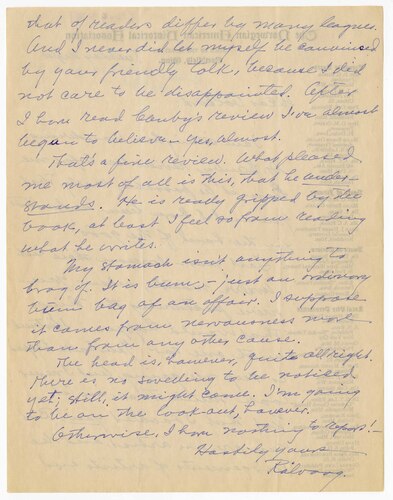 that of readers differ by many leagues.
And I never did let myself be convinced
by your friendly talk, because I did
not care to be disappointed. After
I have read Canby's review I've almost
began to believe — yes, almost.
That's a fine review. What pleased
me most of all is this, that he under-
stands. He is really gripped by the
book, at least I feel so from reading
what he writes.
My stomach isn't anything to
brag of. It is bum, — just an ordinary
bum bag of an affair. I suppose
it comes from nervousness more
than from any other cause.
The head is, however, quite all right.
There is no swelling to be noticed
yet; still, it might come. I'm going
to be on the look-out, however.
Otherwise, I have nothing to report! —
Hastily yours
Rölvaag.